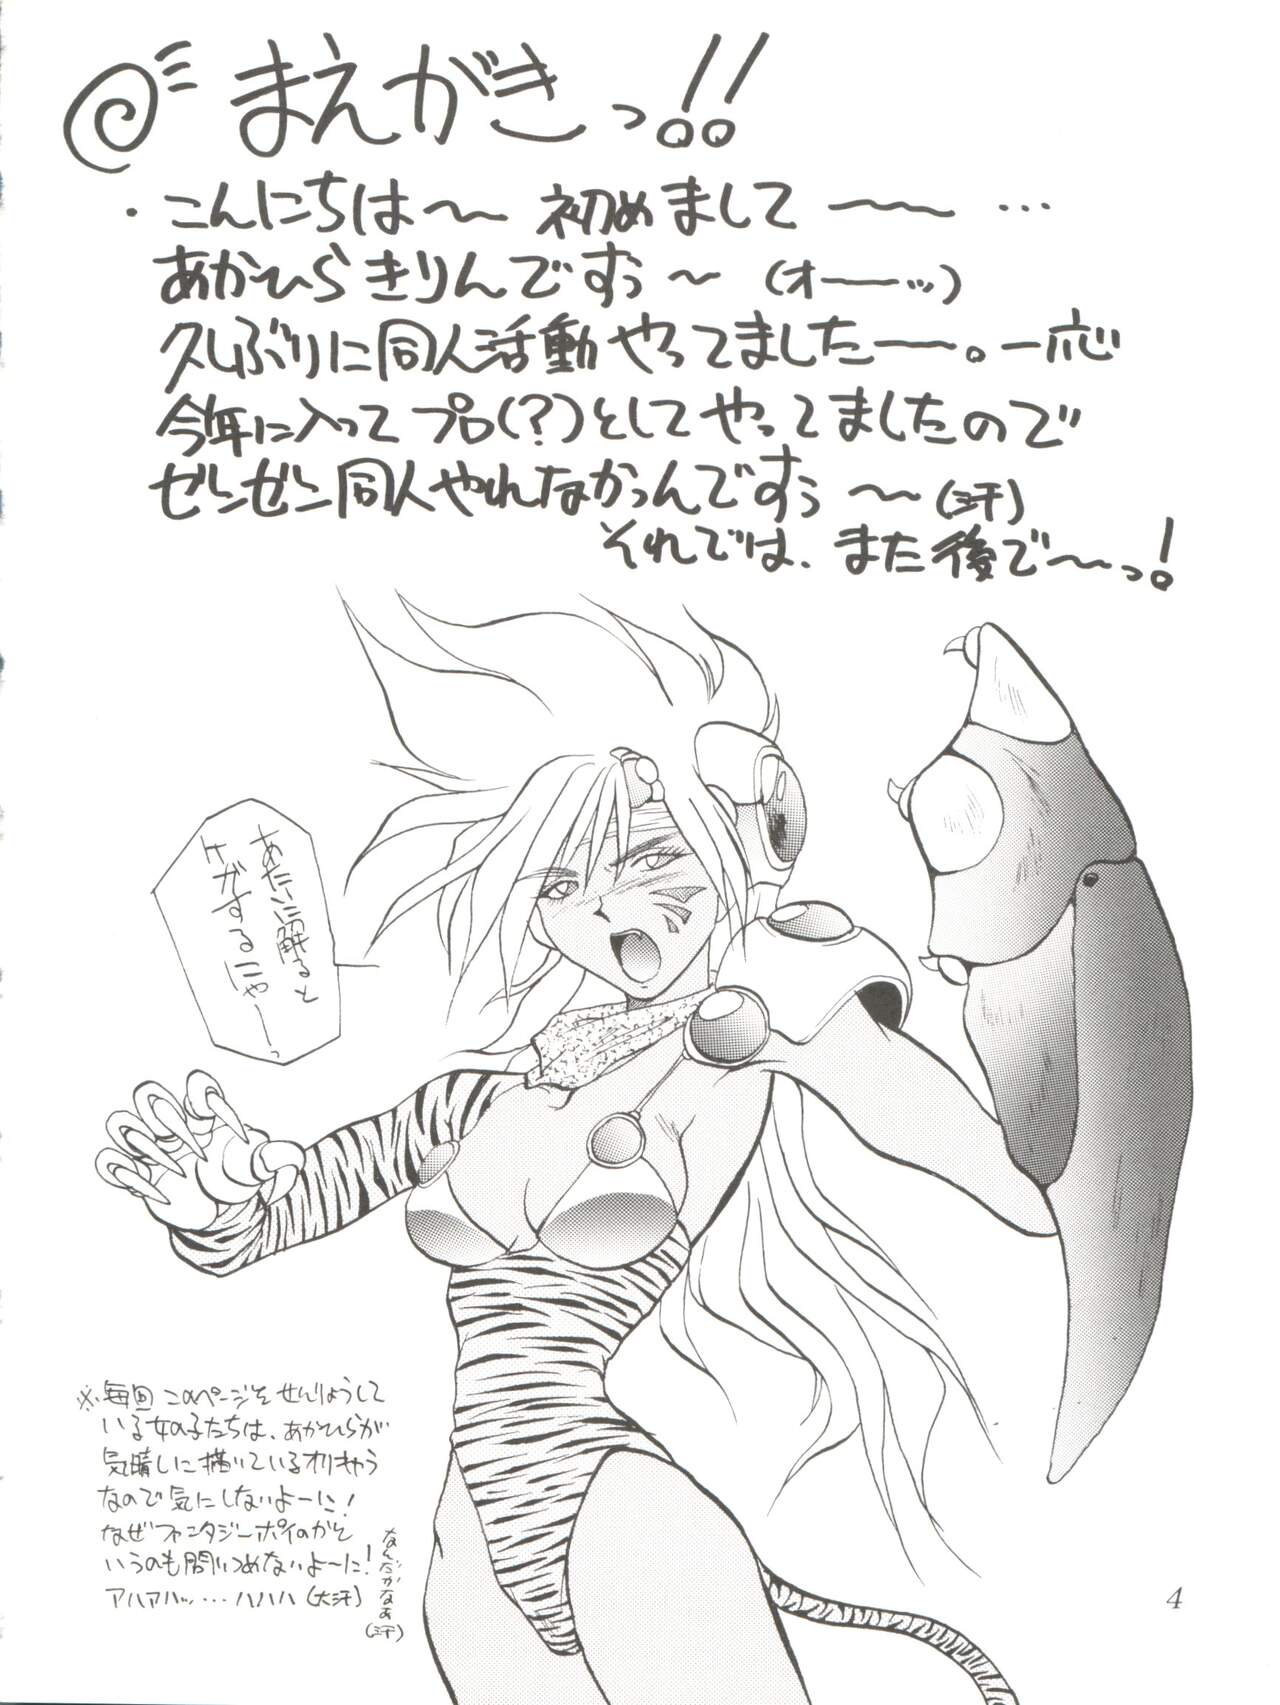 まえがきっ!!
・こんにちは〜〜 初めまして ―〜〜 …
あかひらきりんですぅ〜 (オーーッ)
久しぶりに同人活動やってましたーー。一応
今年に入ってプロ(?)としてやってましたので
ゼンゼン同人やれなかったんですぅ 〜〜(汗)
それでは、また後で〜〜っ!
あたいに触ると
ケガするにゃーっ
※毎回このページをせんりょうして
いる女の子たちは、あかひらが
気晴しに描いているオリキャラ
なので気にしないよーに!
なぜファンタジーポイのかと
いうのも問いつめないよ〜に!
アハアハッ・・・ハハハ(大汗)
なんだかなぁ(汗)
4